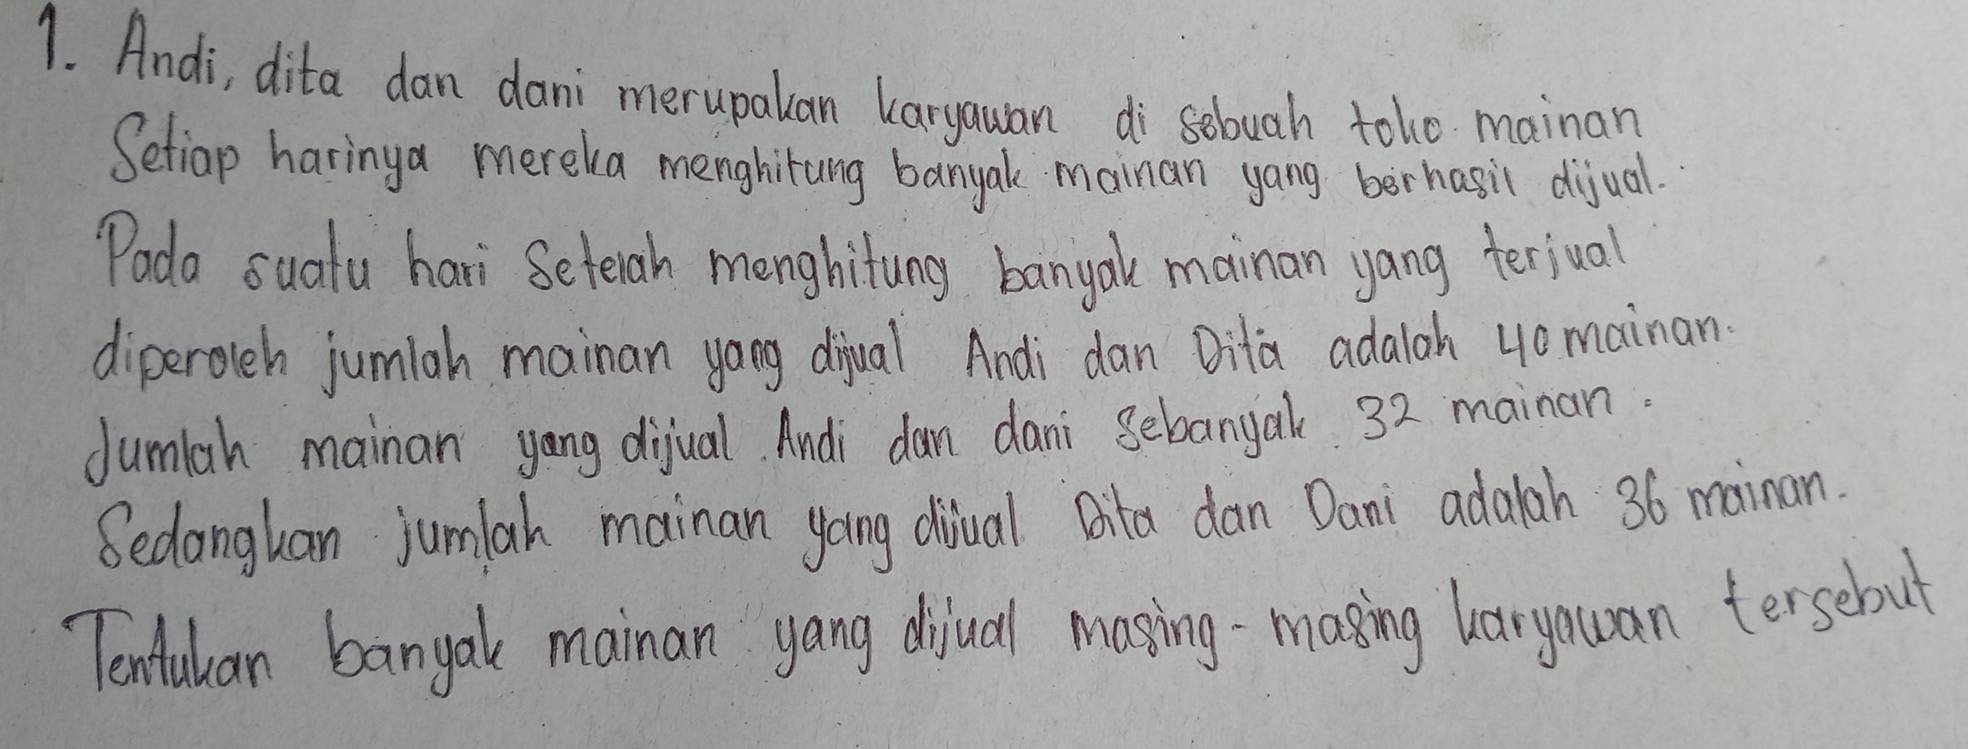 1. Andi, dita dan dani merupakan karyawan di sebuah toko mainan
Setiap harinya mereka menghitung banyak mainan yang berhasil dijual.
Pada suatu hari Setelah menghitung banyak mainan yang terjual
diperoleh jumlah mainan yang dijual Andi dan Dita adalah 40 mainan.
Jumlah mainan yang dijual Andi dan dani Sebanyak 32 mainan.
Sedangkan jumlah mainan yang dijual Dita dan Dani adalah 36 mainan.
Tentukan banyak mainan yang dijual masing-masing karyawan tersebut